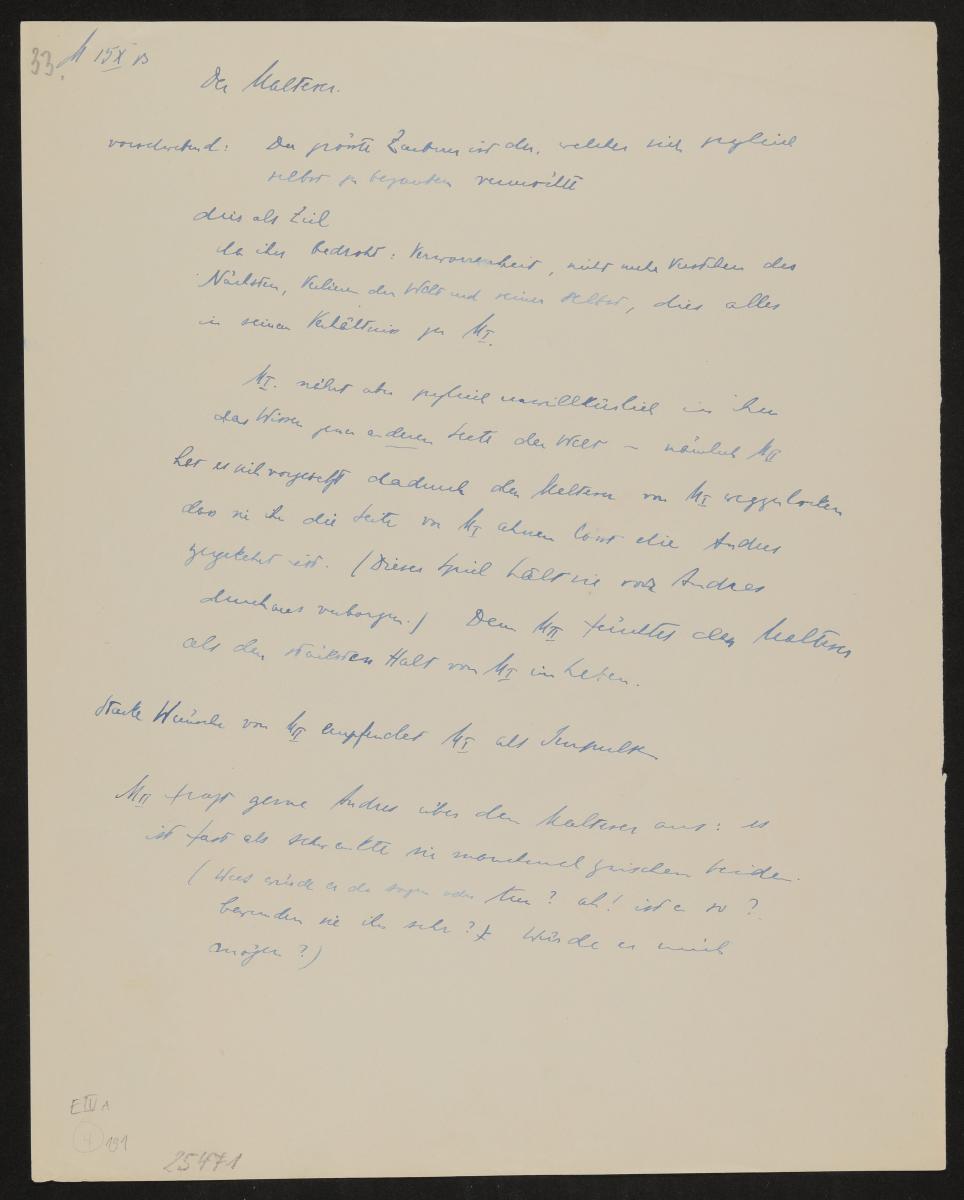 33.
M 15 X 13
Der Malteser.
vorschwebend: Der grösste Zauberer ist der, welcher sich zugleich
selbst zu bezaubern vermöchte
dies als Ziel
da ihn bedroht: Verworrenheit, nicht mehr Verstehen des
Nächsten, Verlieren der Welt und seiner selbst, dies alles
in seinem Verhältnis zu M I.
M I. nährt aber zugleich unwillkürlich in ihm
das Wissen jener anderen Seite der Welt – nämlich M II
hat es sich vorgesetzt dadurch den Malteser von M I wegzulocken
dass sie ihn die Seite von M I ahnen lässt die Andres
zugekehrt ist. (Dieses Spiel hält sie vor Andres
durchaus verborgen.) Denn M II fürchtet den Malteser
als den stärksten Halt von M I im Leben.
Starke Wünsche von M II empfindet M I als Impulse
M II fragt gerne Andres über den Malteser aus: es
ist fast als schwankte sie manchmal zwischen beiden.
(Was würde er da sagen oder tun? ah! ist er so?
bewundern sie ihn sehr? Würde er mich
mögen?)
E IV A
4 191
25471